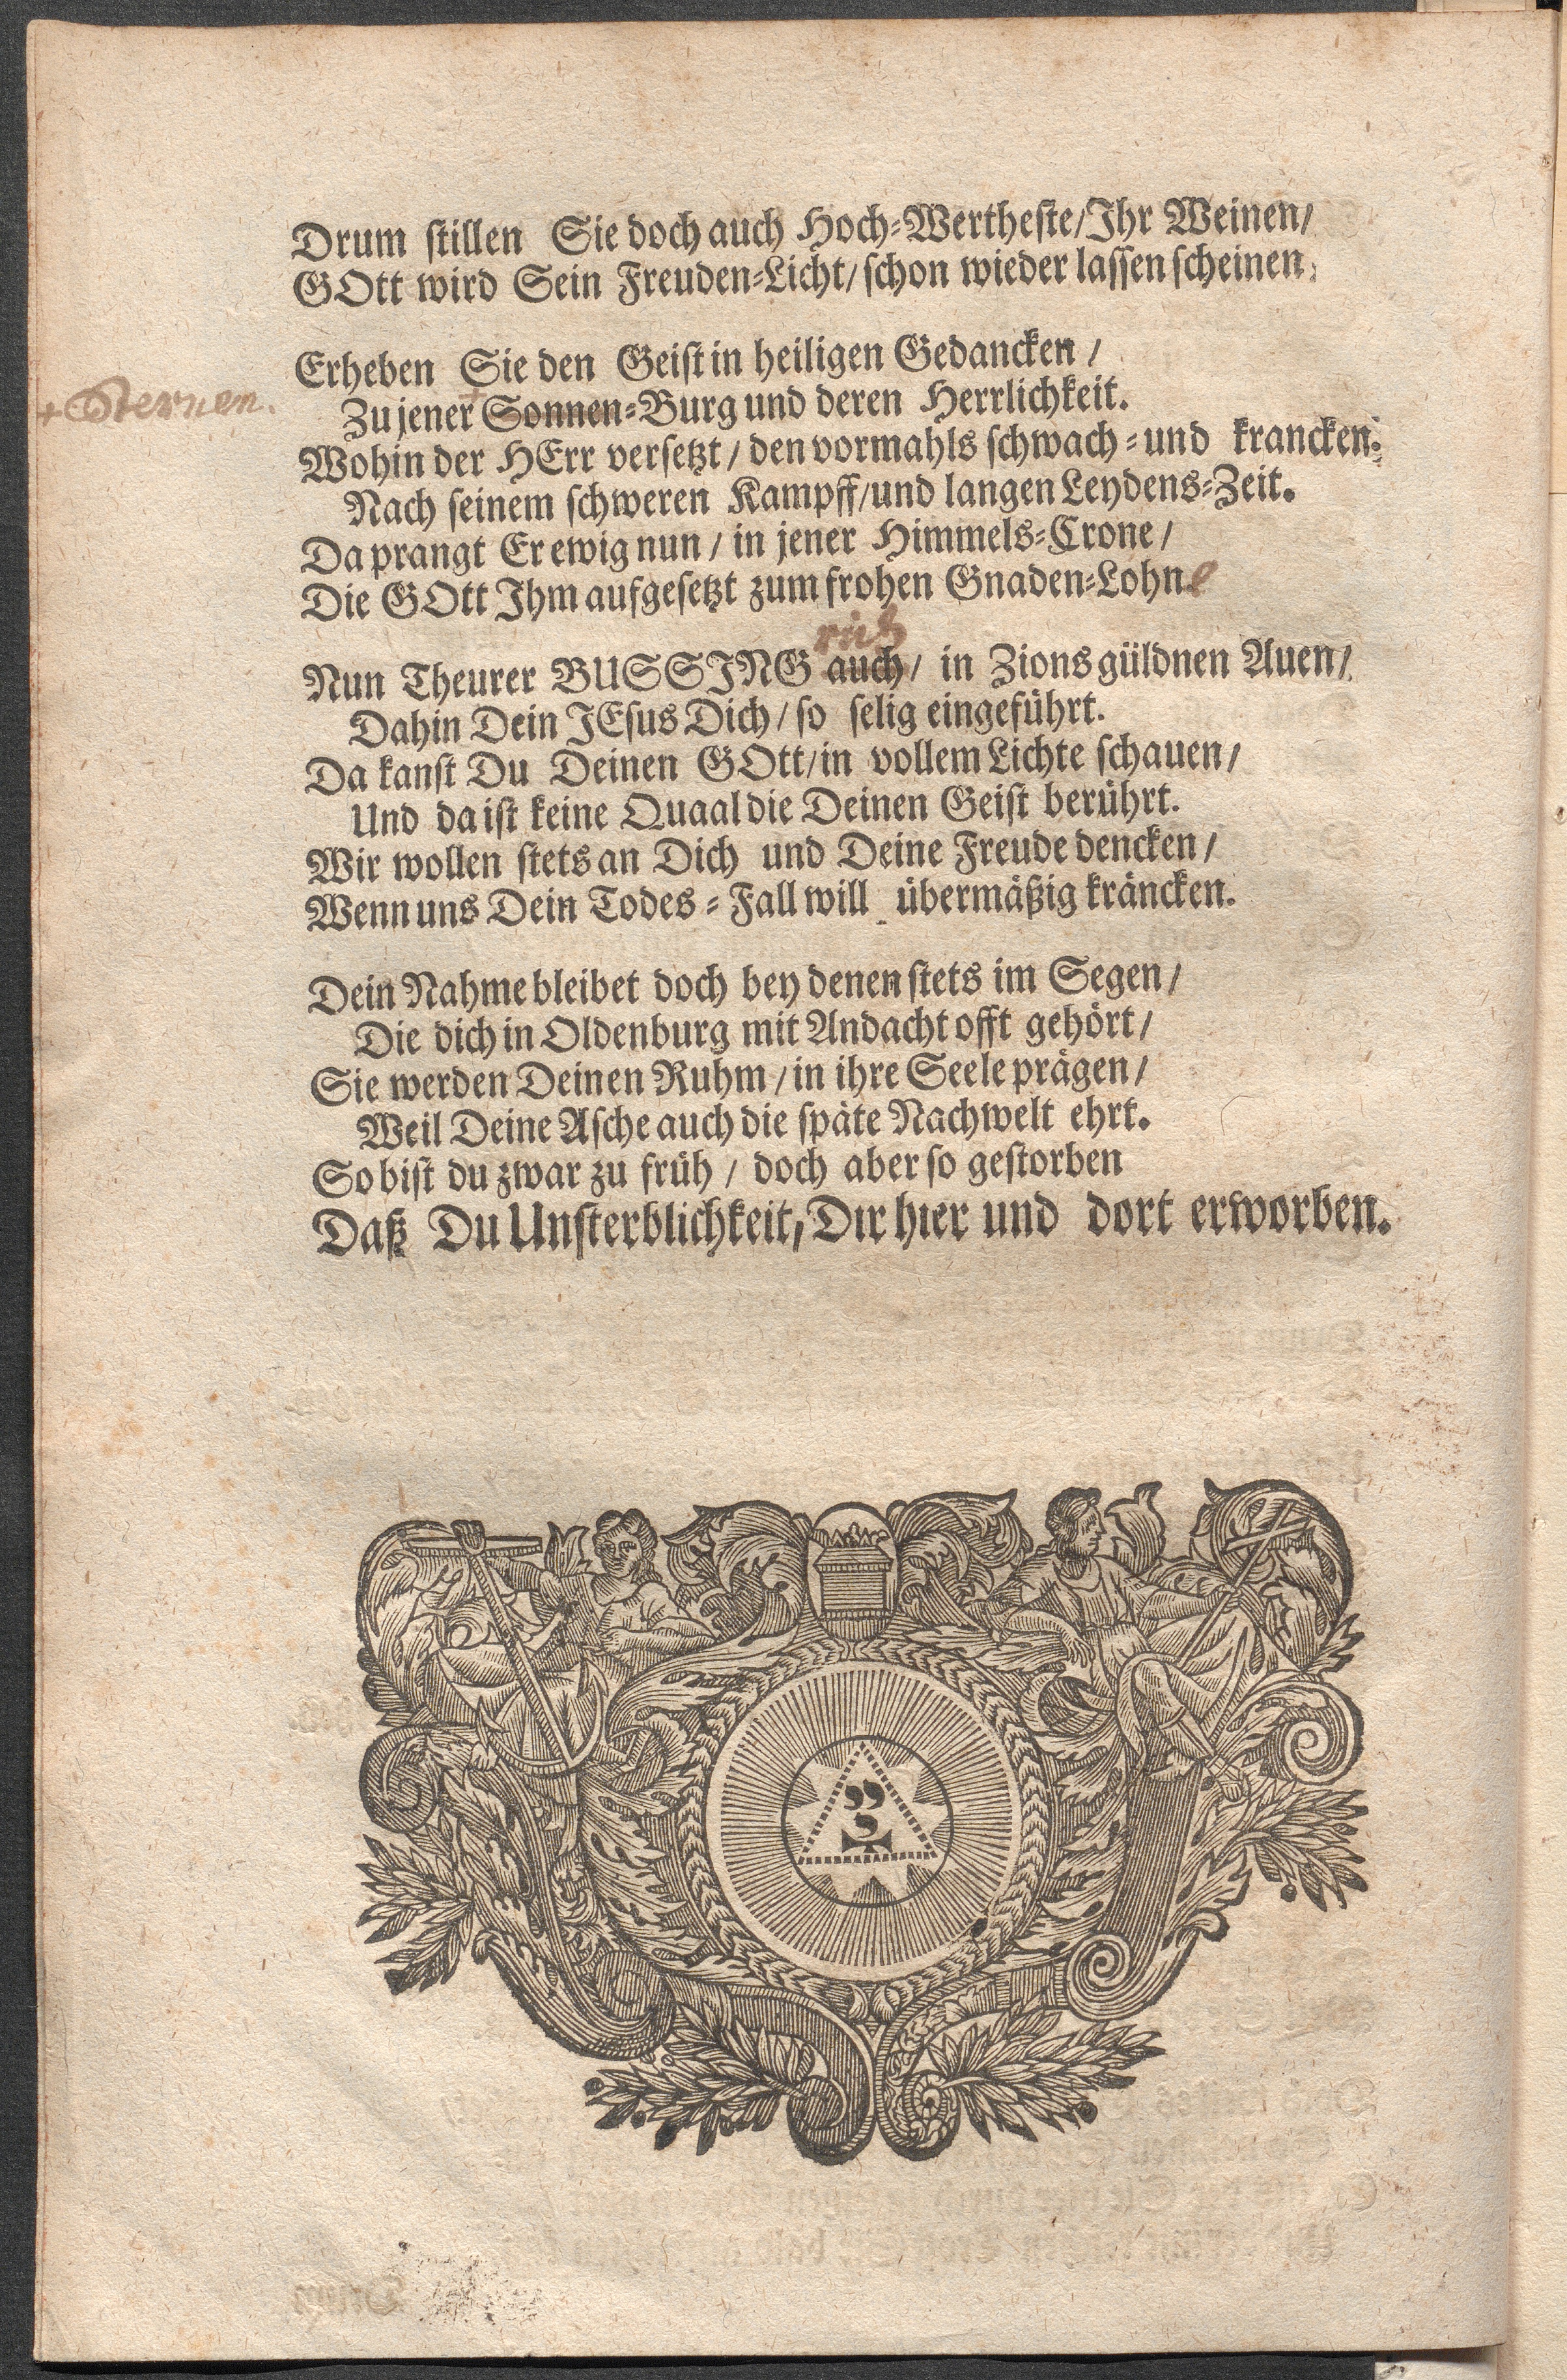 Drum stillen Sie doch auch Hoch-Wertheste/Ihr Weinen/
GOtt wird Sein Freuden-Licht/ schon wieder lassen scheinen.
Erheben Sie den Geist in heiligen Gedancken /
+ Sternen.
Zu jener + Sonnen-Burg und deren Herrlichkeit.
Wohin der HErr versetzt / den vormahls schwach- und krancken.
Nach seinem schweren Kampff/und langen Leydens-Zeit.
Da prangt Er ewig nun / in jener Himmels-Crone /
Die GOtt Ihm aufgesetzt zum frohen Gnaden-Lohne
ruh
Nun Theurer BUSSING auch / in Zions güldnen Auen /
Dahin Dein JEsus Dich / so selig eingeführt.
Da kanst Du Deinen GOtt/in vollem Lichte schauen /
Und da ist keine Quaal die Deinen Geist berührt.
Wir wollen stets an Dich und Deine Freude dencken /
Wenn uns Dein Todes-Fall will übermäßig kräncken.
Dein Nahme bleibet doch bey denen stets im Segen /
Die dich in Oldenburg mit Andacht offt gehört /
Sie werden Deinen Ruhm / in ihre Seele prägen /
Weil Deine Asche auch die späte Nachwelt ehrt.
So bist du zwar zu früh / doch aber so gestorben
Daß Du Unsterblichkeit, Dir hier und dort erworben.